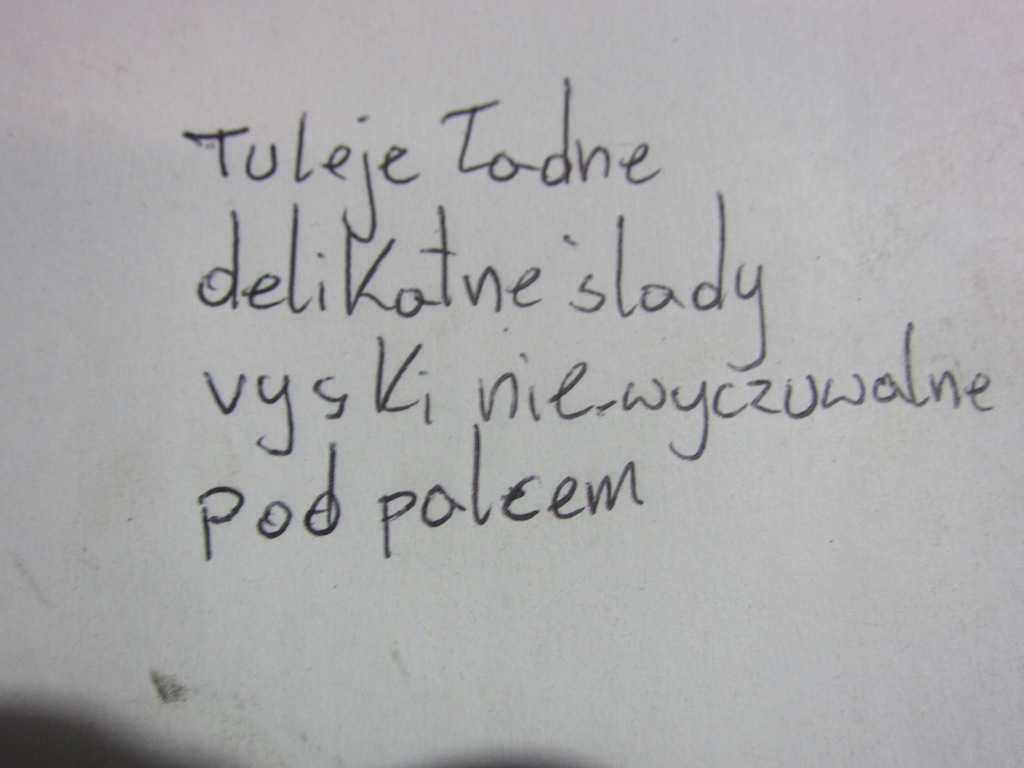 Tuleje ładne
delikatne ślady
vyski nie wyczuwalne
pod palcem